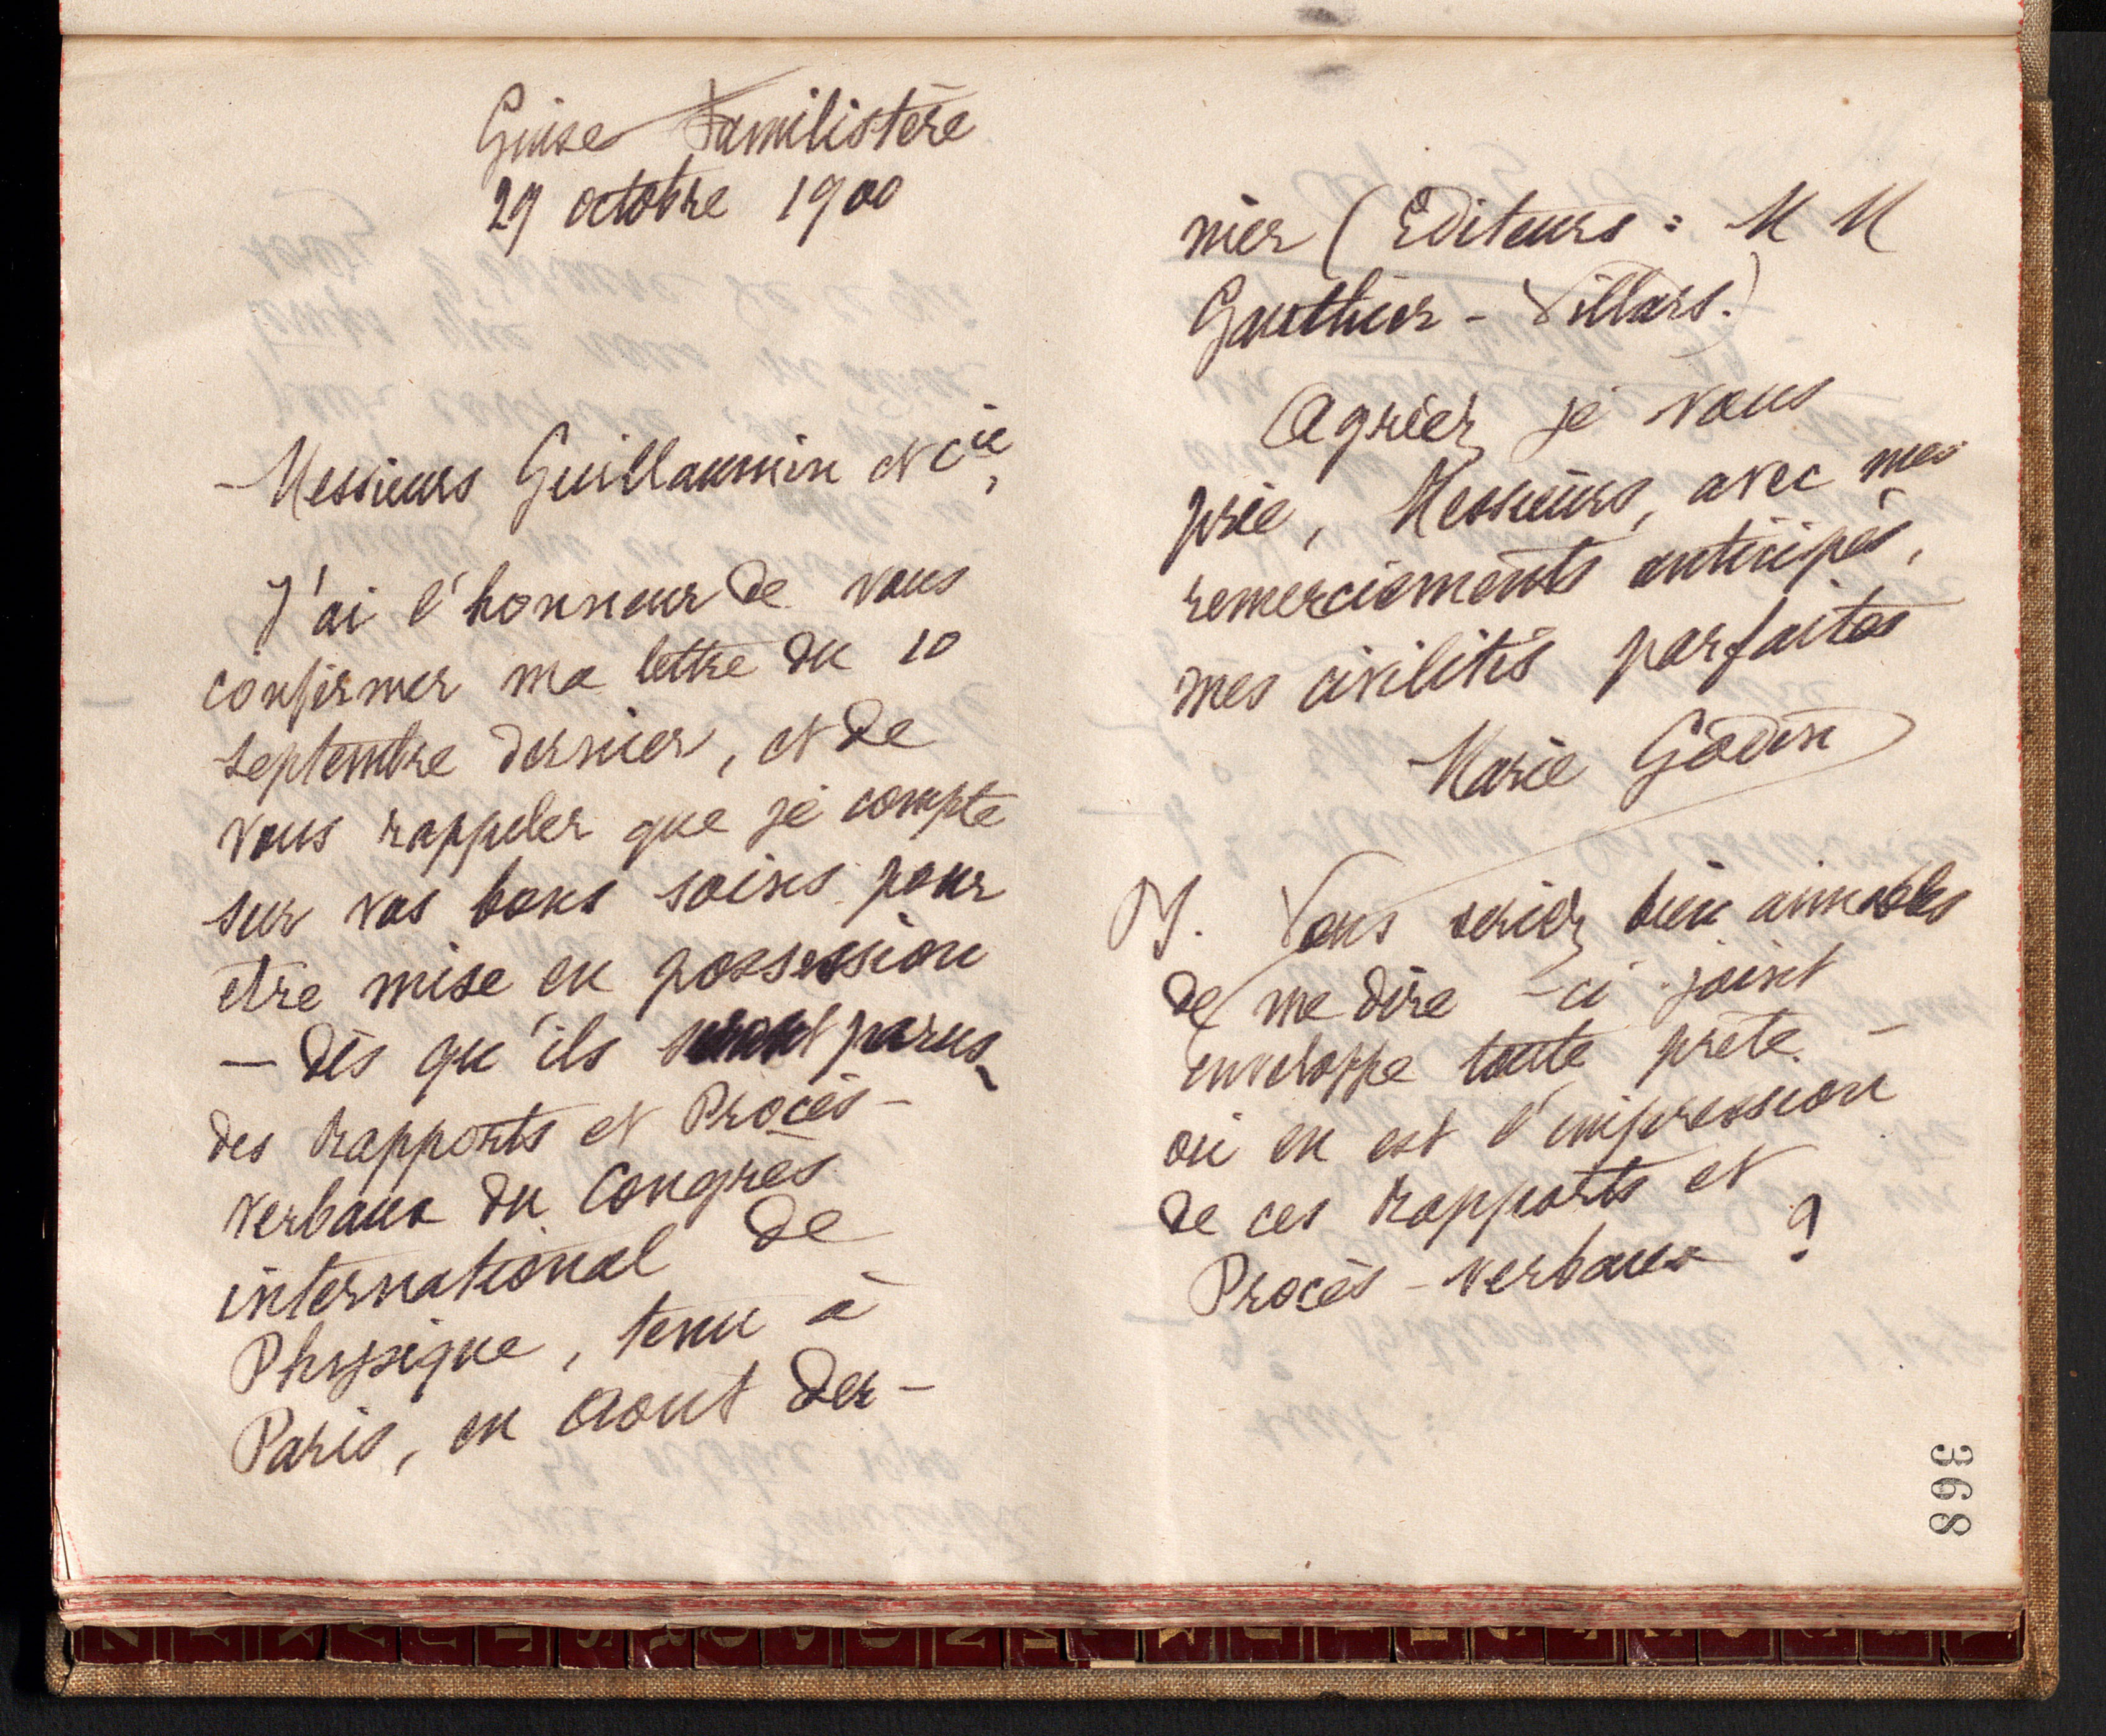 Guise Familistère
29 octobre 1900
Messieurs Guillaumin et Cie,
J'ai l'honneur de vous
confirmer ma lettre du 10
septembre dernier, et de
vous rappeler que je compte
sur vos bons soins pour
être mise en possession
— dès qu'ils seront parus —
des rapports et Procès-
verbaux du Congrès
international de
Physique, tenu à
Paris, en août der-
nier (Editeurs : MM
Gauthier-Villars.)
Agréez je vous
prie, Messieurs, avec mes
remerciements anticipés,
mes civilités parfaites
Marie Godin
N. Vous seriez bien aimables
de me dire — ci joint
enveloppe toute prête. —
où en est l'impression
de ces rapports et
Procès-verbaux ?
368